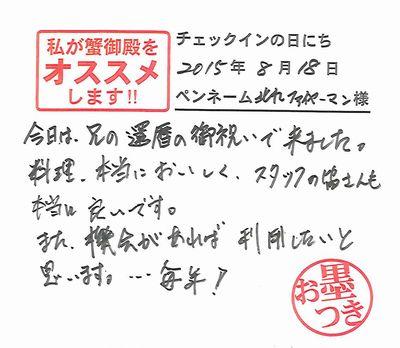 私が蟹御殿を
オススメ
します!!
チェックインの日にち
2015年 8月 18日
ペンネーム 北九ファイヤーマン様
今日は、兄の還暦の御祝いで来ました。
料理、本当においしく、スタッフの皆さんも
本当に良いです。
また、機会があれば 利用したいと
思います。… 毎年!
お墨つき